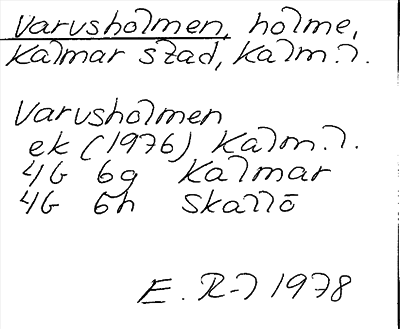 Varvsholmen, holme,
Kalmar stad, Kalm. l.
Varvsholmen
ek (1976) Kalm. l.
4G 6g Kalmar
4G 6h Skallö
E. R-l 1978